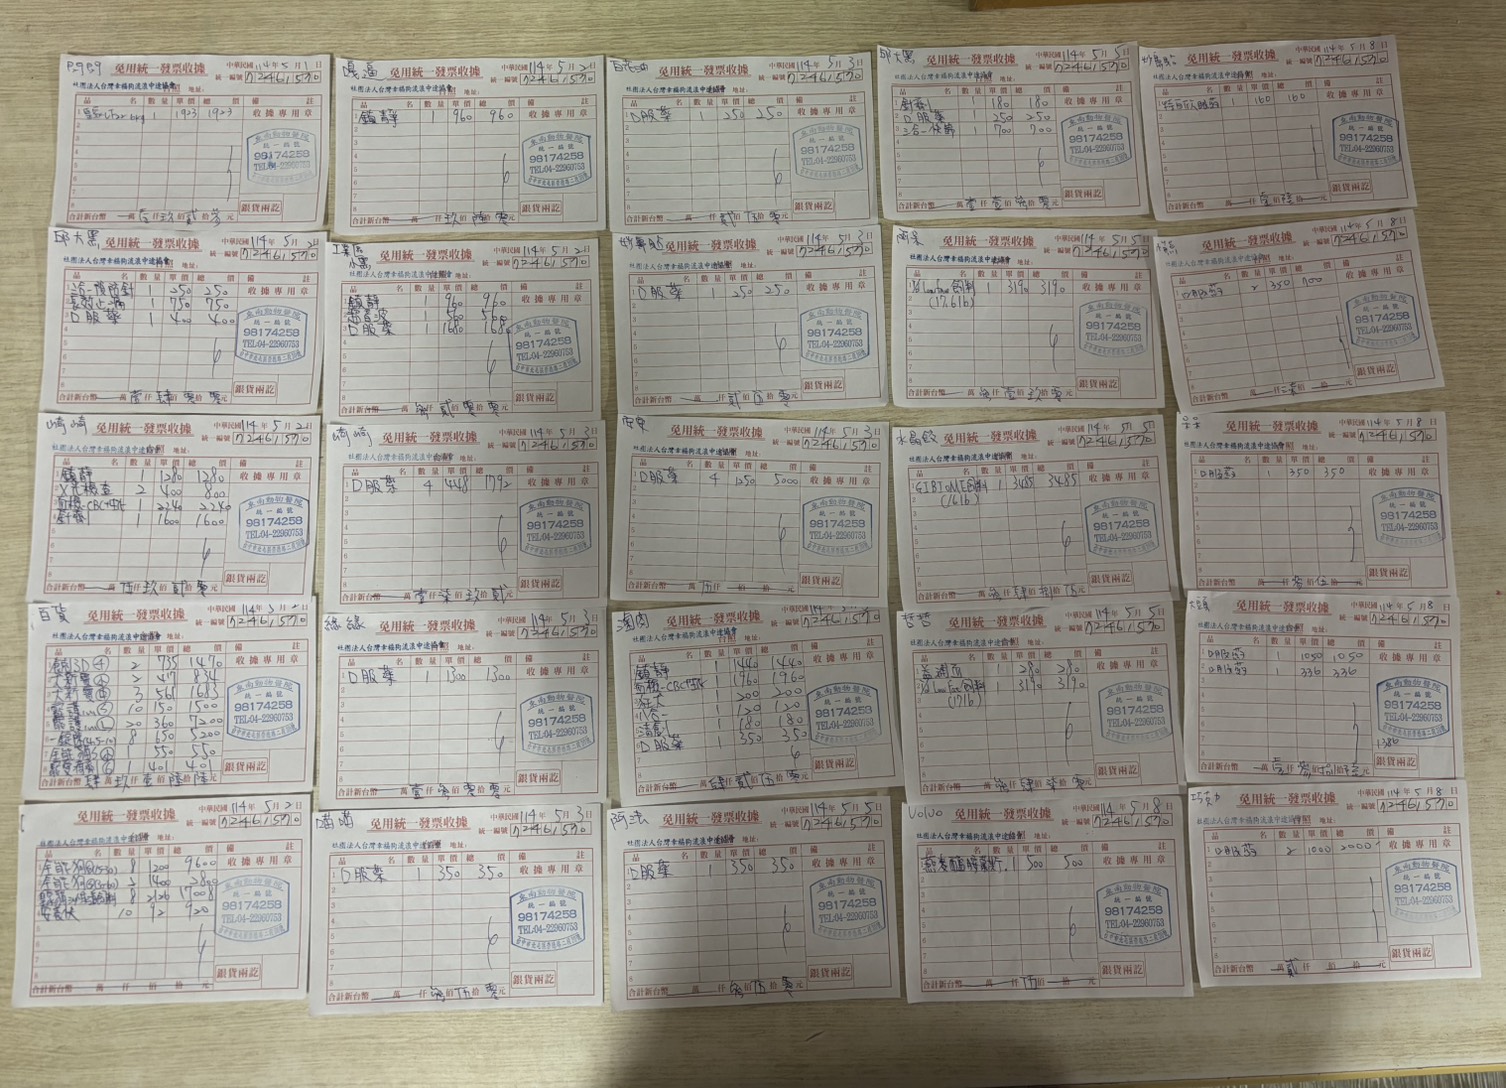 免用統一發票收據
中華民國114年5月1日
統一編號 72461570
社團法人台灣幸福狗流浪中途協會 地址:
品名 數量 單價 總價 備註
1 1923 1923
收據專用章
東南動物醫院
統一編號
98174258
TEL:04-22960753
銀貨兩訖
合計新台幣 萬 仟 玖佰貳拾 元
免用統一發票收據
中華民國114年5月2日
統一編號 72461570
社團法人台灣幸福狗流浪中途協會 地址:
品名 數量 單價 總價 備註
鎮靜 1 960 960
收據專用章
東南動物醫院
統一編號
98174258
TEL:04-22960753
銀貨兩訖
合計新台幣 萬 仟 玖佰陸拾零元
免用統一發票收據
中華民國114年5月3日
統一編號 72461570
社團法人台灣幸福狗流浪中途協會 地址:
品名 數量 單價 總價 備註
口服藥 1 250 250
收據專用章
東南動物醫院
統一編號
98174258
TEL:04-22960753
銀貨兩訖
合計新台幣 萬 仟 貳佰伍拾零元
邱大黑
免用統一發票收據
中華民國114年5月5日
統一編號 72461570
社團法人台灣幸福狗流浪中途協會
品名 數量 單價 總價 備註
針劑 1 180 180
口服藥 1 250 250
三合一快篩 1 700 700
收據專用章
東南動物醫院
統一編號
98174258
TEL:04-22960753
銀貨兩訖
合計新台幣 萬 壹仟壹佰參拾零元
免用統一發票收據
中華民國114年5月8日
統一編號 72461570
社團法人台灣幸福狗流浪中途協會
品名 數量 單價 總價 備註
1 160 160
收據專用章
東南動物醫院
統一編號
98174258
TEL:04-22960753
銀貨兩訖
合計新台幣 萬 仟 壹佰陸拾 元
邱大黑
免用統一發票收據
中華民國114年5月2日
統一編號 72461570
社團法人台灣幸福狗流浪中途協會 地址:
品名 數量 單價 總價 備註
1 250 250
長效止痛 1 750 750
口服藥 1 400 400
收據專用章
東南動物醫院
統一編號
98174258
TEL:04-22960753
銀貨兩訖
合計新台幣 萬 壹仟肆佰零拾零元
工業區
小黑
免用統一發票收據
中華民國114年5月2日
統一編號 72461570
社團法人台灣幸福狗流浪中途協會 地址:
品名 數量 單價 總價 備註
鎮靜 1 960 960
超音波
口服藥 1680 1680
收據專用章
東南動物醫院
統一編號
98174258
TEL:04-22960753
銀貨兩訖
合計新台幣 萬 參仟貳佰零拾零元
免用統一發票收據
中華民國114年5月3日
統一編號 72461570
社團法人台灣幸福狗流浪中途協會 地址:
品名 數量 單價 總價 備註
口服藥 1 250 250
收據專用章
東南動物醫院
統一編號
98174258
TEL:04-22960753
銀貨兩訖
合計新台幣 萬 仟 貳佰伍拾零元
免用統一發票收據
中華民國114年5月5日
統一編號 72461570
社團法人台灣幸福狗流浪中途協會 地址:
品名 數量 單價 總價 備註
飼料 1 3190 3190
(17.6lb)
收據專用章
東南動物醫院
統一編號
98174258
TEL:04-22960753
銀貨兩訖
合計新台幣 萬 參仟壹佰玖拾零元
免用統一發票收據
中華民國114年5月8日
統一編號 72461570
社團法人台灣幸福狗流浪中途協會 地址:
品名 數量 單價 總價 備註
口服藥 2 350 700
收據專用章
東南動物醫院
統一編號
98174258
TEL:04-22960753
銀貨兩訖
合計新台幣
崎崎
免用統一發票收據
中華民國114年5月2日
統一編號 72461570
社團法人台灣幸福狗流浪中途協會 地址:
品名 數量 單價 總價 備註
鎮靜 1 1280 1280
X光檢查 2 400 800
1 2240 2240
針劑 1 1600 1600
收據專用章
東南動物醫院
統一編號
98174258
TEL:04-22960753
銀貨兩訖
合計新台幣 萬 伍仟玖佰貳拾零元
崎崎
免用統一發票收據
中華民國114年5月3日
統一編號 72461570
社團法人台灣幸福狗流浪中途協會 地址:
品名 數量 單價 總價 備註
口服藥 4 448 1792
收據專用章
東南動物醫院
統一編號
98174258
TEL:04-22960753
銀貨兩訖
合計新台幣 萬 壹仟柒佰玖拾貳元
免用統一發票收據
中華民國114年5月3日
統一編號 72461570
社團法人台灣幸福狗流浪中途協會 地址:
品名 數量 單價 總價 備註
口服藥 4 1250 5000
收據專用章
東南動物醫院
統一編號
98174258
TEL:04-22960753
銀貨兩訖
合計新台幣 萬 伍仟 佰 拾 元
水晶餃
免用統一發票收據
中華民國114年5月5日
統一編號 72461570
社團法人台灣幸福狗流浪中途協會 地址:
品名 數量 單價 總價 備註
GI BIOME飼料 1 3485 3485
(16lb)
收據專用章
東南動物醫院
統一編號
98174258
TEL:04-22960753
銀貨兩訖
合計新台幣 萬 參仟肆佰捌拾伍元
免用統一發票收據
中華民國114年5月8日
統一編號 72461570
社團法人台灣幸福狗流浪中途協會 地址:
品名 數量 單價 總價 備註
口服藥 1 350 350
收據專用章
東南動物醫院
統一編號
98174258
TEL:04-22960753
銀貨兩訖
合計新台幣
百貨
免用統一發票收據
統一編號 72461570
社團法人台灣幸福狗流浪中途協會 地址:
品名 數量 單價 總價 備註
2 735 1470
2 417 834
3 561 1683
10 150 1500
20 360 7200
8 650 5200
1 550 550
1 401 401
收據專用章
東南動物醫院
統一編號
98174258
TEL:04-22960753
銀貨兩訖
合計新台幣
綠綠
免用統一發票收據
中華民國114年5月3日
統一編號 72461570
社團法人台灣幸福狗流浪中途協會 地址:
品名 數量 單價 總價 備註
口服藥 1 1300 1300
收據專用章
東南動物醫院
統一編號
98174258
TEL:04-22960753
銀貨兩訖
合計新台幣 萬 壹仟參佰零拾零元
免用統一發票收據
統一編號 72461570
社團法人台灣幸福狗流浪中途協會 地址:
品名 數量 單價 總價 備註
鎮靜 1 1440 1440
1 1960 1960
狂犬 1 200 200
八合一 1 120 120
針劑 1 180 180
口服藥 1 350 350
收據專用章
東南動物醫院
統一編號
98174258
TEL:04-22960753
銀貨兩訖
合計新台幣 萬 肆仟貳佰伍拾零元
哲哲
免用統一發票收據
中華民國114年5月5日
統一編號 72461570
社團法人台灣幸福狗流浪中途協會 地址:
品名 數量 單價 總價 備註
1 280 280
飼料 1 3190 3190
收據專用章
東南動物醫院
統一編號
98174258
TEL:04-22960753
銀貨兩訖
合計新台幣 萬 參仟肆佰柒拾零元
免用統一發票收據
中華民國114年5月8日
統一編號 72461570
社團法人台灣幸福狗流浪中途協會 地址:
品名 數量 單價 總價 備註
口服藥 1 1050 1050
口服藥 1 336 336
1386
收據專用章
東南動物醫院
統一編號
98174258
TEL:04-22960753
銀貨兩訖
合計新台幣
免用統一發票收據
中華民國114年5月2日
統一編號 72461570
社團法人台灣幸福狗流浪中途協會 地址:
品名 數量 單價 總價 備註
8 1200 9600
2 1400 2800
8 2126 17008
10 92 920
收據專用章
東南動物醫院
統一編號
98174258
TEL:04-22960753
銀貨兩訖
合計新台幣 萬 仟 佰 拾 元
喵喵
免用統一發票收據
中華民國114年5月3日
統一編號 72461570
社團法人台灣幸福狗流浪中途協會 地址:
品名 數量 單價 總價 備註
口服藥 1 350 350
收據專用章
東南動物醫院
統一編號
98174258
TEL:04-22960753
銀貨兩訖
合計新台幣 萬 仟 參佰伍拾零元
阿法
免用統一發票收據
中華民國114年5月5日
統一編號 72461570
社團法人台灣幸福狗流浪中途協會 地址:
品名 數量 單價 總價 備註
口服藥 350 350
收據專用章
東南動物醫院
統一編號
98174258
TEL:04-22960753
銀貨兩訖
合計新台幣 萬 仟 參佰伍拾零元
Volvo
免用統一發票收據
中華民國114年5月8日
統一編號 72461570
社團法人台灣幸福狗流浪中途協會 地址:
品名 數量 單價 總價 備註
1 500 500
收據專用章
東南動物醫院
統一編號
98174258
TEL:04-22960753
銀貨兩訖
合計新台幣 萬 仟 伍佰 拾 元
巧克力
免用統一發票收據
中華民國114年5月8日
統一編號 72461570
社團法人台灣幸福狗流浪中途協會 地址:
品名 數量 單價 總價 備註
口服藥 2 1000 2000
收據專用章
東南動物醫院
統一編號
98174258
TEL:04-22960753
銀貨兩訖
合計新台幣 萬 貳仟 佰 拾 元